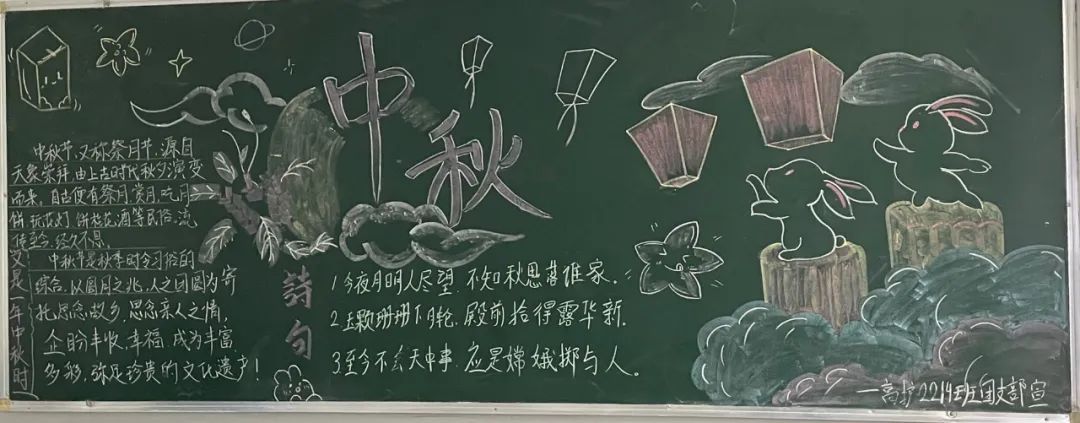 中秋
中秋节，又称祭月节，源自
天象崇拜，由上古时代秋夕演变
而来，自古便有祭月、赏月、吃月
饼、玩花灯、饮桂花酒等民俗，流
传至今，经久不息。
中秋节是秋季时令习俗的
综合，以圆月之兆人之团圆为寄
托，思念故乡，思念亲人之情，
企盼丰收、幸福，成为丰富
多彩，弥足珍贵的文化遗产！
又是一年中秋时
诗句
1.今夜月明人尽望，不知秋思落谁家。
2.玉颗珊珊下月轮，殿前拾得露华新。
3.至今不会天中事，应是嫦娥掷与人。
——高护2214班团支部宣